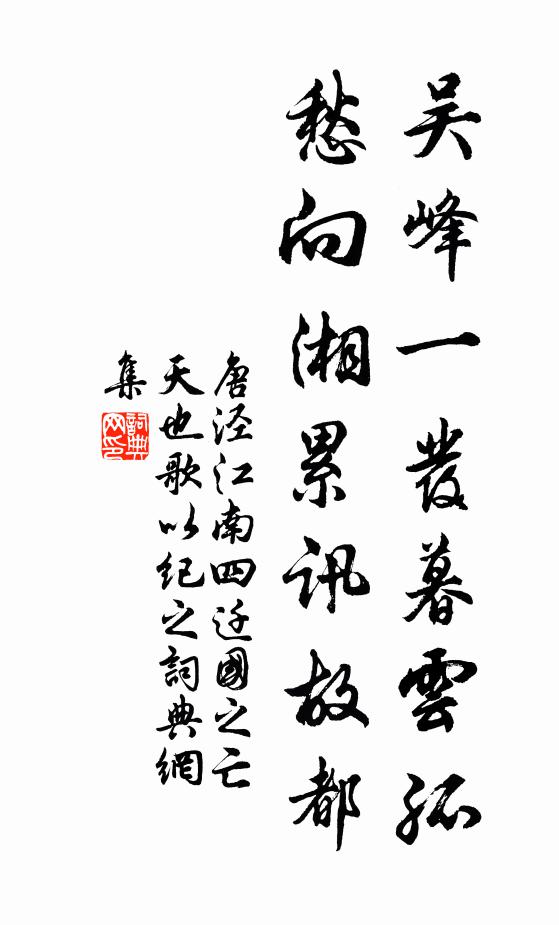 吴峰一发暮雲孤
愁向湘累訊故都
唐泾江南四迁國之亡
天也歌以纪之詞典網
集
詞典
网印